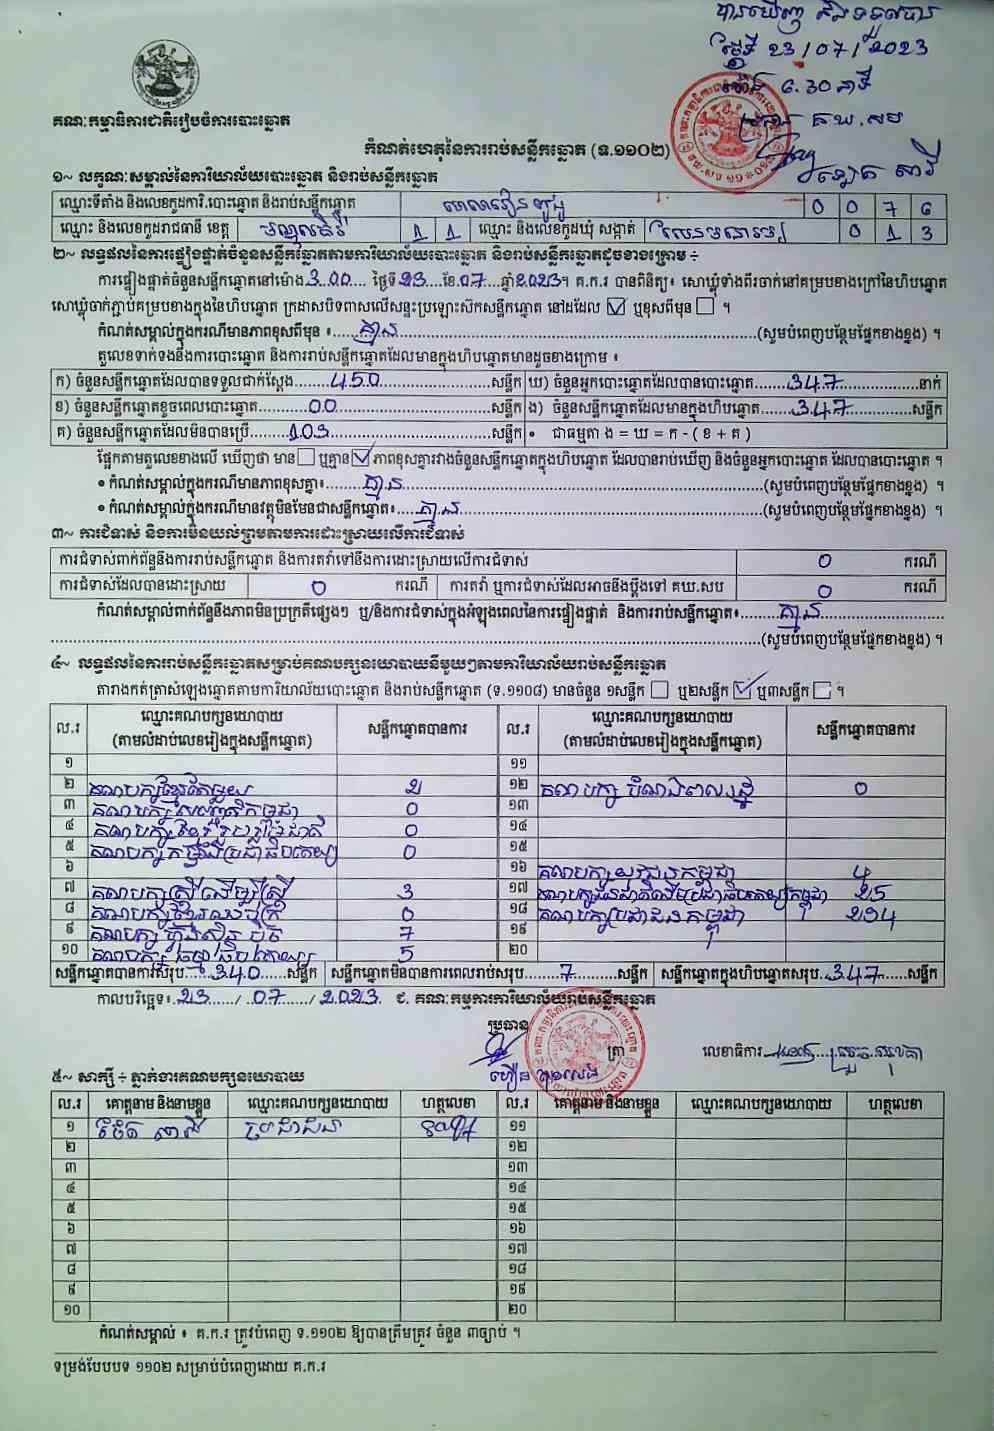 បានឃើញ និងទទួលបាន
ថ្ងៃទី 23/07/2023
ម៉ោង 6.30 នាទី
គ.ឃ.សប
គណៈកម្មាធិការជាតិរៀបចំការបោះឆ្នោត
កំណត់ហេតុនៃការរាប់សន្លឹកឆ្នោត (ទ.១១០២)
១~ លក្ខណៈសម្គាល់នៃការិយាល័យបោះឆ្នោត និងរាប់សន្លឹកឆ្នោត
ឈ្មោះទីតាំង និងលេខកូដការិ.បោះឆ្នោត និងរាប់សន្លឹកឆ្នោត 0 0 7 6
ឈ្មោះ និងលេខកូដរាជធានី ខេត្ត មណ្ឌលគិរី 1 1 ឈ្មោះ និងលេខកូដឃុំ សង្កាត់ សែនមនោរម្យ 0 1 3
២~ លទ្ធផលនៃការផ្ទៀងផ្ទាត់ចំនួនសន្លឹកឆ្នោតតាមការិយាល័យបោះឆ្នោត និងរាប់សន្លឹកឆ្នោតដូចខាងក្រោម ÷
ការផ្ទៀងផ្ទាត់ចំនួនសន្លឹកឆ្នោតនៅម៉ោង 3.00 ថ្ងៃទី 23 ខែ 07 ឆ្នាំ 2023។ គ.ក.រ បានពិនិត្យ៖ សោឃ្លុំទាំងពីរចាក់នៅគម្របខាងក្រៅនៃហិបឆ្នោត
សោឃ្លុំចាក់ភ្ជាប់គម្របខាងក្នុងនៃហិបឆ្នោត ក្រដាសបិទពាសលើសន្ទះប្រឡោះស៊កសន្លឹកឆ្នោត នៅដដែល ☑ ឬខុសពីមុន ☐ ។
កំណត់សម្គាល់ក្នុងករណីមានភាពខុសពីមុន ៖ គ្មាន (សូមបំពេញបន្ថែមផ្នែកខាងខ្នង) ។
តួលេខទាក់ទងនឹងការបោះឆ្នោត និងការរាប់សន្លឹកឆ្នោតដែលមានក្នុងហិបឆ្នោតមានដូចខាងក្រោម ៖
ក) ចំនួនសន្លឹកឆ្នោតដែលបានទទួលជាក់ស្តែង 450 សន្លឹក ឃ) ចំនួនអ្នកបោះឆ្នោតដែលបានបោះឆ្នោត 347 នាក់
ខ) ចំនួនសន្លឹកឆ្នោតខូចពេលបោះឆ្នោត 00 សន្លឹក ង) ចំនួនសន្លឹកឆ្នោតដែលមានក្នុងហិបឆ្នោត 347 សន្លឹក
គ) ចំនួនសន្លឹកឆ្នោតដែលមិនបានប្រើ 103 សន្លឹក • ជាធម្មតា ង = ឃ = ក - ( ខ + គ )
ផ្អែកតាមតួលេខខាងលើ ឃើញថា មាន ☐ ឬគ្មាន ☑ ភាពខុសគ្នារវាងចំនួនសន្លឹកឆ្នោតក្នុងហិបឆ្នោត ដែលបានរាប់ឃើញ និងចំនួនអ្នកបោះឆ្នោត ដែលបានបោះឆ្នោត ។
• កំណត់សម្គាល់ក្នុងករណីមានភាពខុសគ្នា៖ គ្មាន (សូមបំពេញបន្ថែមផ្នែកខាងខ្នង) ។
• កំណត់សម្គាល់ក្នុងករណីមានវត្ថុមិនមែនជាសន្លឹកឆ្នោត៖ គ្មាន (សូមបំពេញបន្ថែមផ្នែកខាងខ្នង) ។
៣~ ការជំទាស់ និងការមិនយល់ព្រមតាមការដោះស្រាយលើការជំទាស់
ការជំទាស់ពាក់ព័ន្ធនឹងការរាប់សន្លឹកឆ្នោត និងការតវ៉ាទៅនឹងការដោះស្រាយលើការជំទាស់ 0 ករណី
ការជំទាស់ដែលបានដោះស្រាយ 0 ករណី ការតវ៉ា ឬការជំទាស់ដែលអាចនឹងប្តឹងទៅ គឃ.សប 0 ករណី
កំណត់សម្គាល់ពាក់ព័ន្ធនឹងភាពមិនប្រក្រតីផ្សេងៗ ឬ/និងការជំទាស់ក្នុងអំឡុងពេលនៃការផ្ទៀងផ្ទាត់ និងការរាប់សន្លឹកឆ្នោត៖ គ្មាន
(សូមបំពេញបន្ថែមផ្នែកខាងខ្នង) ។
៤~ លទ្ធផលនៃការរាប់សន្លឹកឆ្នោតសម្រាប់គណបក្សនយោបាយនីមួយៗតាមការិយាល័យរាប់សន្លឹកឆ្នោត
តារាងកត់ត្រាសំឡេងឆ្នោតតាមការិយាល័យបោះឆ្នោត និងរាប់សន្លឹកឆ្នោត (ទ.១១០៨) មានចំនួន ១សន្លឹក ☐ ឬ២សន្លឹក ☑ ឬ៣សន្លឹក ☐ ។
ល.រ ឈ្មោះគណបក្សនយោបាយ (តាមលំដាប់លេខរៀងក្នុងសន្លឹកឆ្នោត) សន្លឹកឆ្នោតបានការ ល.រ ឈ្មោះគណបក្សនយោបាយ (តាមលំដាប់លេខរៀងក្នុងសន្លឹកឆ្នោត) សន្លឹកឆ្នោតបានការ
១ ១១
២ គណបក្សខ្មែរតែមួយ 2 ១២ គណបក្ស បំណងពលរដ្ឋ 0
៣ គណបក្ស សញ្ជាតិកម្ពុជា 0 ១៣
៤ គណបក្សខ្មែររួបរួមជាតិ 0 ១៤
៥ គណបក្សកម្លាំងប្រជាធិបតេយ្យ 0 ១៥
៦ ១៦ គណបក្សយុវជនកម្ពុជា 4
៧ គណបក្សស្ត្រីដើម្បីស្ត្រី 3 ១៧ គណបក្សជនជាតិដើមប្រជាធិបតេយ្យកម្ពុជា 25
៨ គណបក្សខ្មែរឈប់ក្រ 0 ១៨ គណបក្សប្រជាជនកម្ពុជា 294
៩ គណបក្ស ហ៊្វុនស៊ិនប៉ិច 7 ១៩
១០ គណបក្ស ធម្មាធិបតេយ្យ 5 ២០
សន្លឹកឆ្នោតបានការសរុប 340 សន្លឹក សន្លឹកឆ្នោតមិនបានការពេលរាប់សរុប 7 សន្លឹក សន្លឹកឆ្នោតក្នុងហិបឆ្នោតសរុប 347 សន្លឹក
កាលបរិច្ឆេទ៖ 23 / 07 / 2023 ជ. គណៈកម្មការការិយាល័យរាប់សន្លឹកឆ្នោត
ប្រធាន ត្រា លេខាធិការ
៥~ សាក្សី ÷ ភ្នាក់ងារគណបក្សនយោបាយ
ល.រ គោត្តនាម និងនាមខ្លួន ឈ្មោះគណបក្សនយោបាយ ហត្ថលេខា ល.រ គោត្តនាម និងនាមខ្លួន ឈ្មោះគណបក្សនយោបាយ ហត្ថលេខា
១ ប្រជាជន ១១
២ ១២
៣ ១៣
៤ ១៤
៥ ១៥
៦ ១៦
៧ ១៧
៨ ១៨
៩ ១៩
១០ ២០
កំណត់សម្គាល់ ៖ គ.ក.រ ត្រូវបំពេញ ទ.១១០២ ឱ្យបានត្រឹមត្រូវ ចំនួន ៣ច្បាប់ ។
ទម្រង់បែបបទ ១១០២ សម្រាប់បំពេញដោយ គ.ក.រ